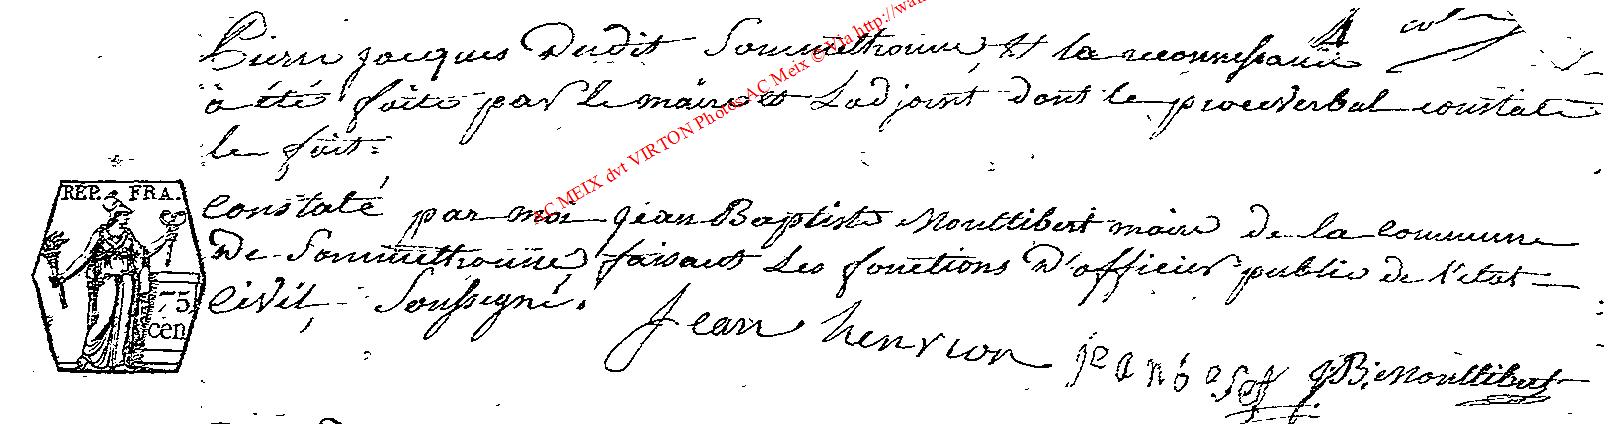 Pierre jacques Dudit Sommethonne, Et la reconnessance
a été faite par le maire et Ladjoint dont le proceverbal constate
le fait.
AC MEIX dvt VIRTON Photos AC Meix © Via http://wa
REP. FRA.
75
cen
constaté par moi jean Baptiste Nouttibert maire de la commune
De Sommethonne, faisant Les fonctions D'officier public de l'etat
civil, Soussegné.
Jean henrion jean b J B. Nouttibert